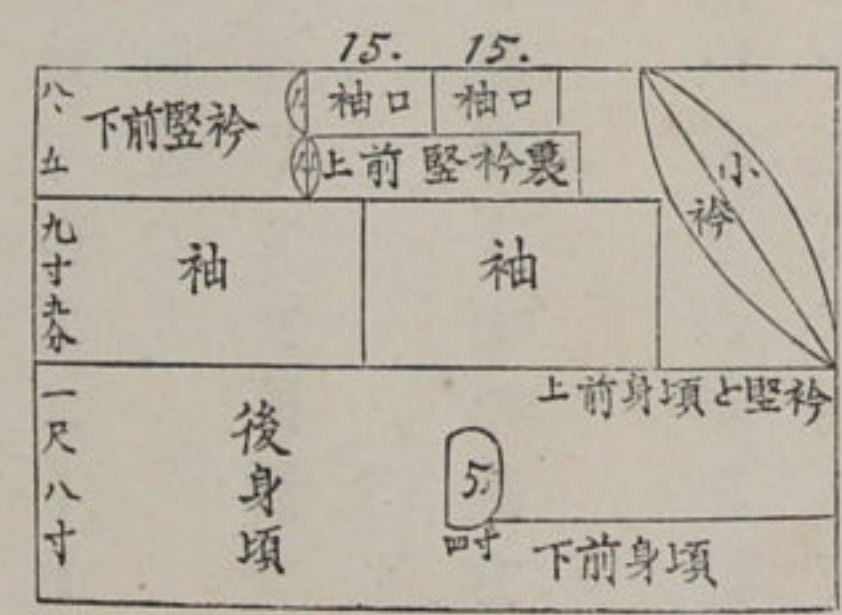 15. 15.
八、五
下前竪衿
袖口
袖口
上前竪衿裏
小衿
九寸九分
袖
袖
一尺八寸
後身頃
上前身頃と竪衿
5.
四寸
下前身頃